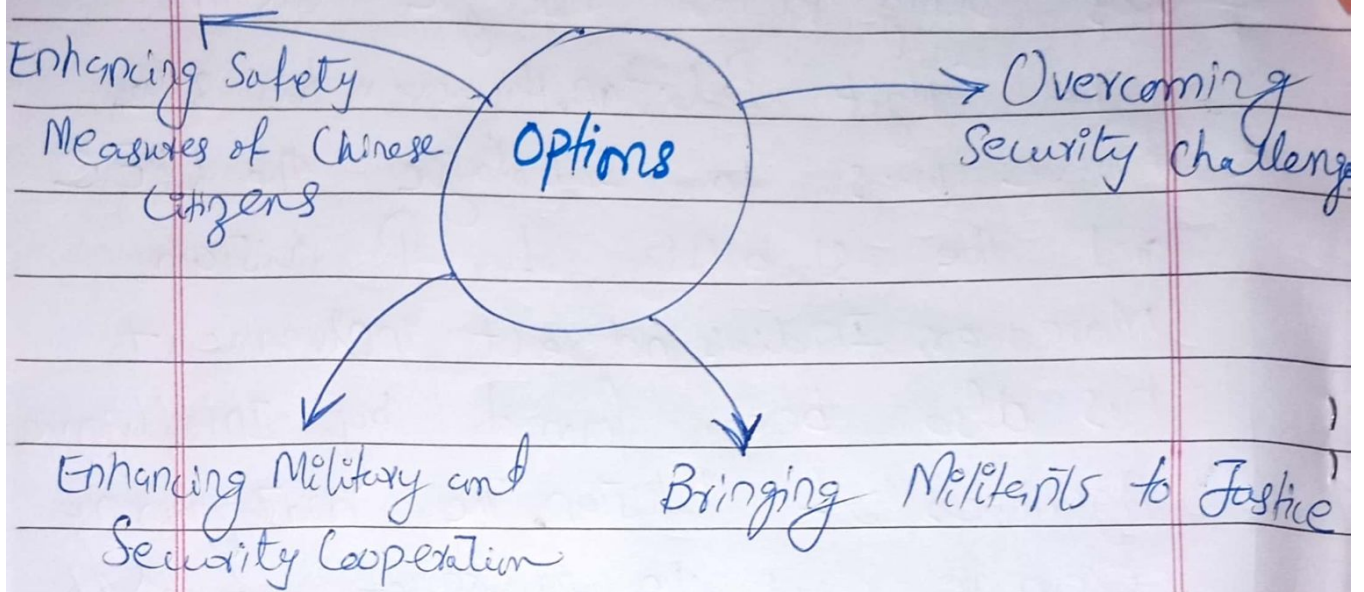 Enhancing Safety
Measures of Chinese
Citizens
Options
Overcoming
Security challenge
Enhancing Military and
Security Cooperation
Bringing Militants to Justice